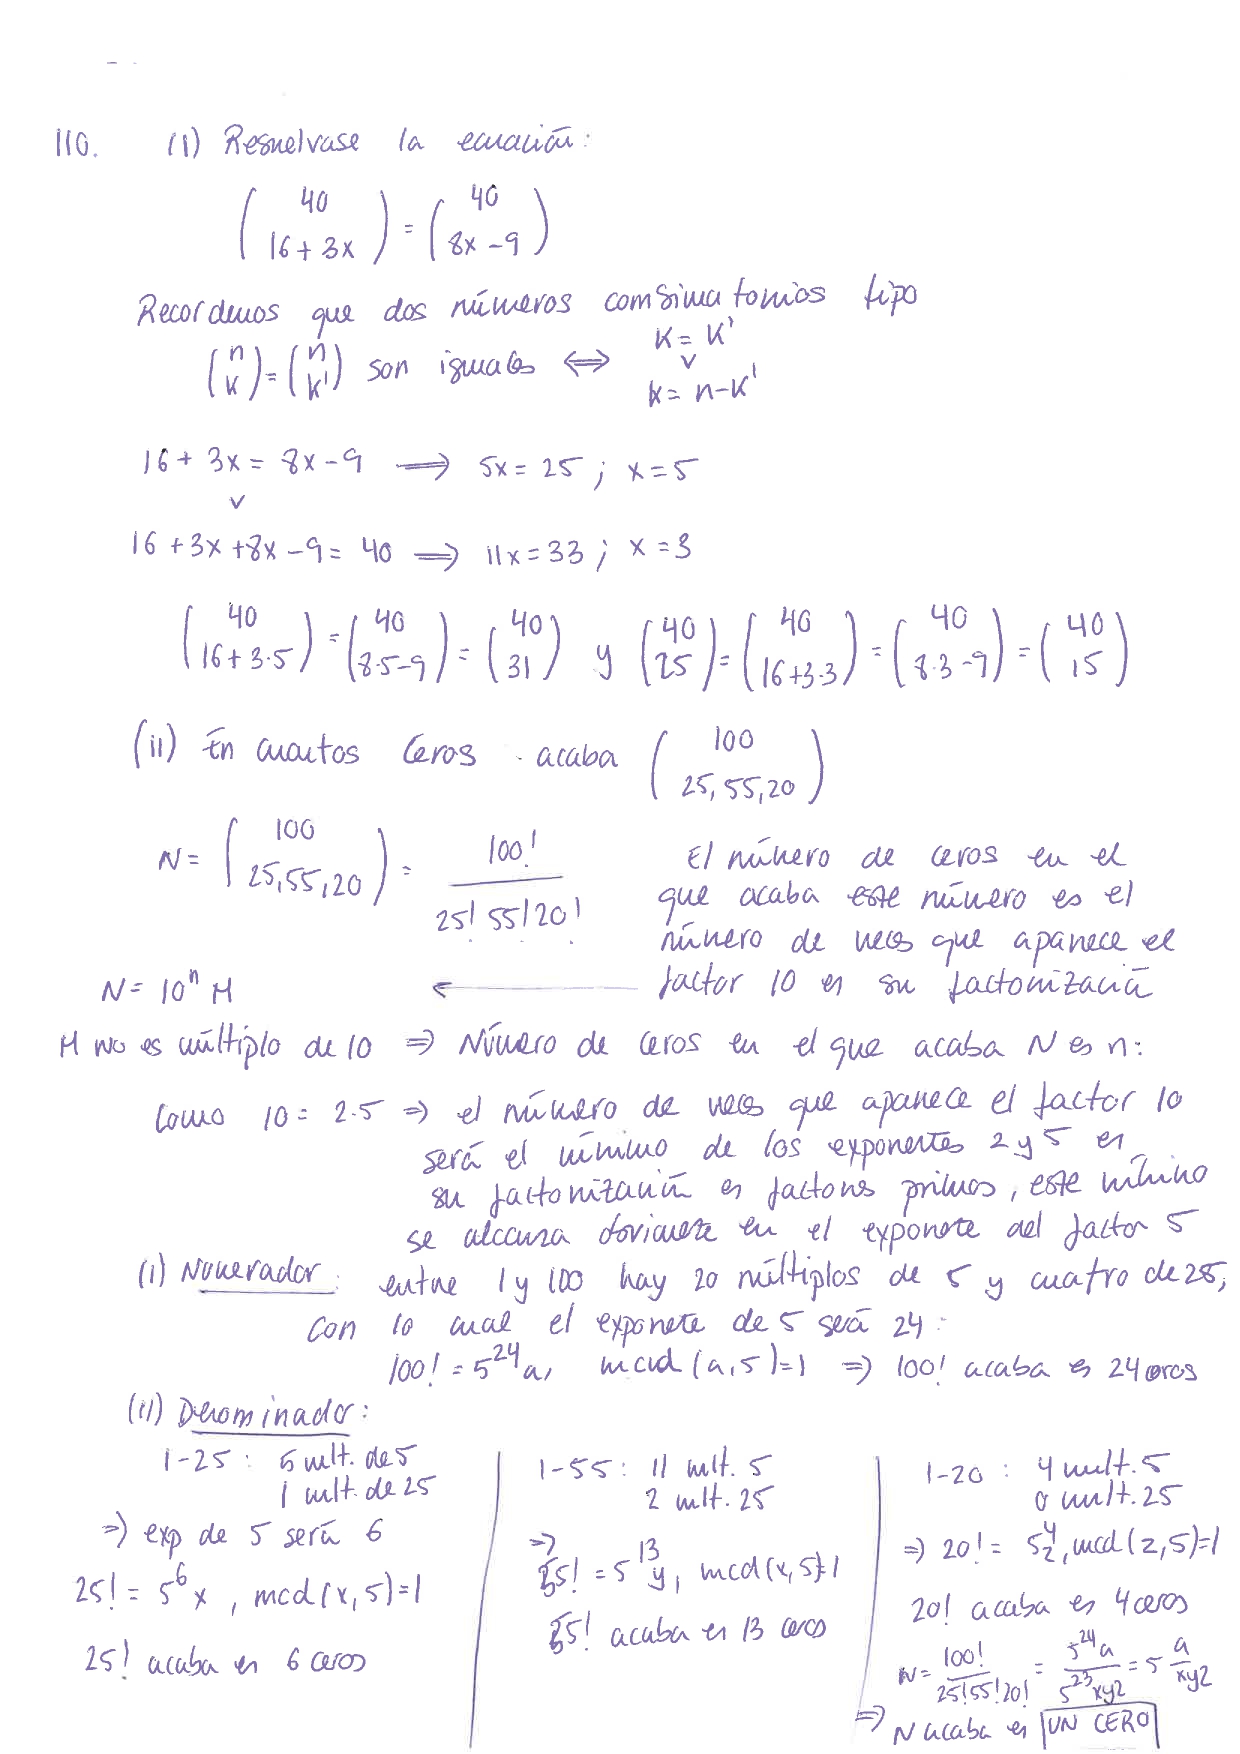 110. (i) Resuelvase la ecuación:
(40 / 16+3x) = (40 / 8x-9)
Recordemos que dos números combinatorios tipo
(n / k) = (n / k') son iguales ⟺ k = k' ∨ k = n-k'
16 + 3x = 8x - 9 ⟹ 5x = 25 ; x = 5
∨
16 + 3x + 8x - 9 = 40 ⟹ 11x = 33 ; x = 3
(40 / 16+3·5) = (40 / 8·5-9) = (40 / 31) y (40 / 25) = (40 / 16+3·3) = (40 / 8·3-9) = (40 / 15)
(ii) En cuantos ceros acaba (100 / 25,55,20)
N = (100 / 25,55,20) = 100! / 25! 55! 20!
El número de ceros en el
que acaba este número es el
número de veces que aparece el
factor 10 en su factorización
N = 10^n M ⟵
M no es múltiplo de 10 ⇒ Número de ceros en el que acaba N es n:
Como 10 = 2·5 ⇒ el número de veces que aparece el factor 10
será el mínimo de los exponentes 2 y 5 en
su factorización en factores primos, este mínimo
se alcanza en el exponente del factor 5
(i) Numerador: entre 1 y 100 hay 20 múltiplos de 5 y cuatro de 25,
con lo cual el exponente de 5 será 24:
100! = 5^24 a, mcd(a,5)=1 ⇒ 100! acaba en 24 ceros
(ii) Denominador:
1-25: 5 mult. de 5
1 mult. de 25
⇒ exp de 5 será 6
25! = 5^6 x, mcd(x,5)=1
25! acaba en 6 ceros
1-55: 11 mlt. 5
2 mlt. 25
⇒
55! = 5^13 y, mcd(x,5)=1
55! acaba en 13 ceros
1-20: 4 mult. 5
0 mult. 25
⇒ 20! = 5^4 z, mcd(z,5)=1
20! acaba en 4 ceros
N = 100! / 25!55!20! = 5^24 a / 5^23 xyz = 5 a / xyz
⇒ N acaba en UN CERO